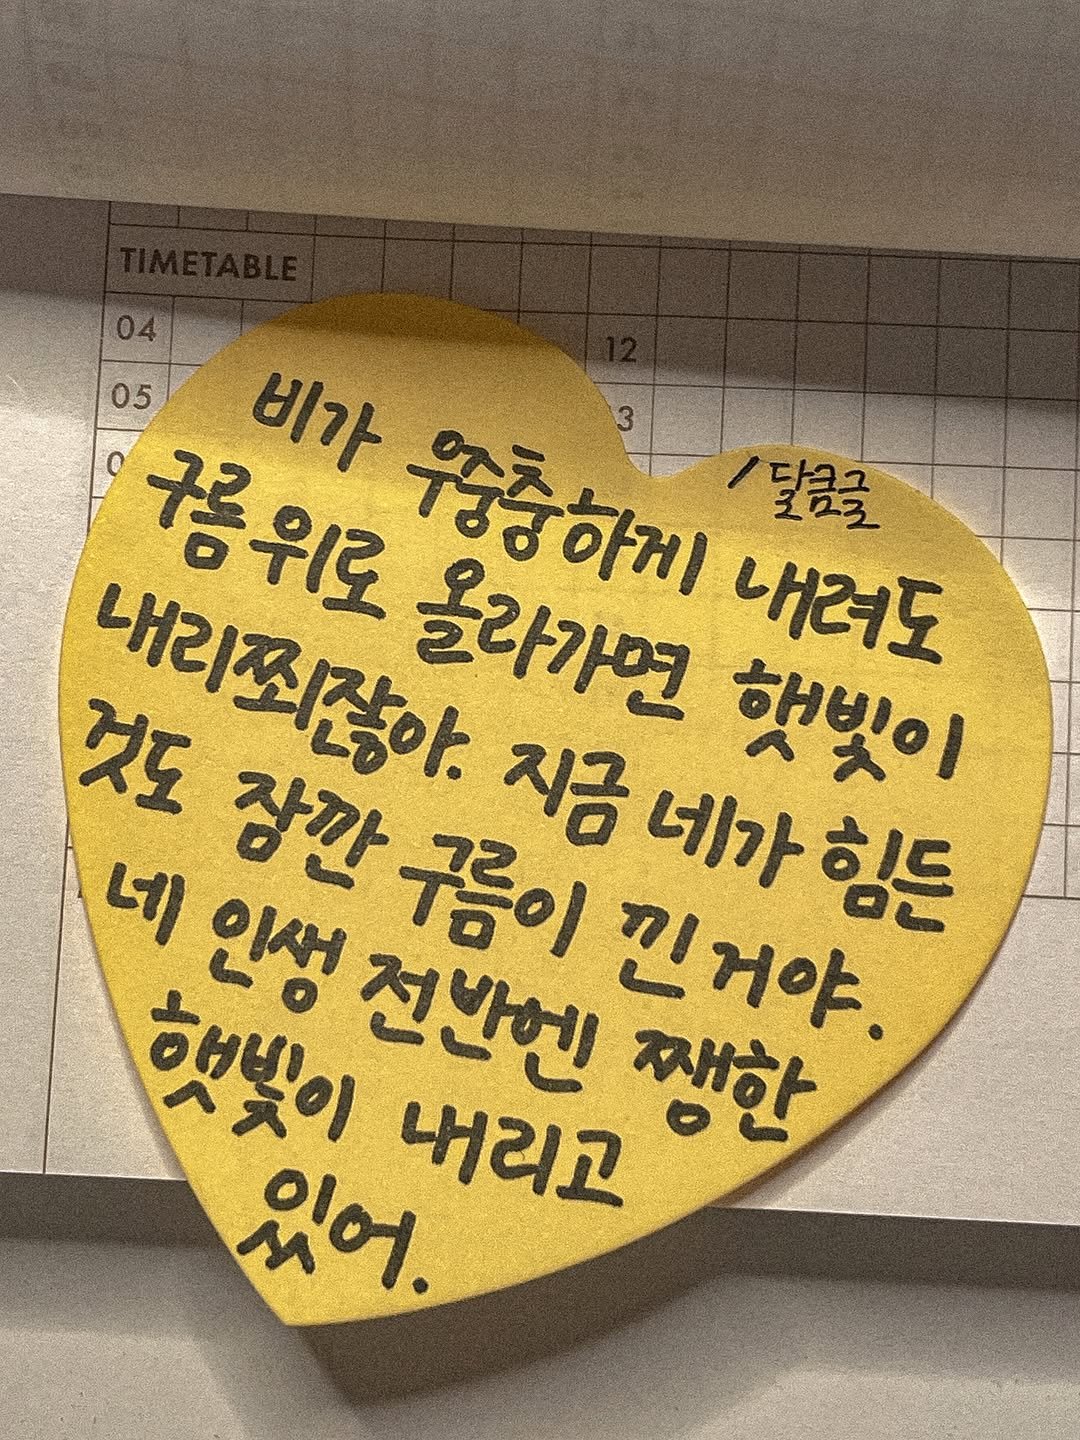 TIMETABLE
04
12
05
3
0
/달큼글
비가 우중충하게 내려도
구름 위로 올라가면 햇빛이
내리쬐잖아. 지금 네가 힘든
것도 잠깐 구름이 낀 거야.
네 인생 전반엔 쨍한
햇빛이 내리고
있어.